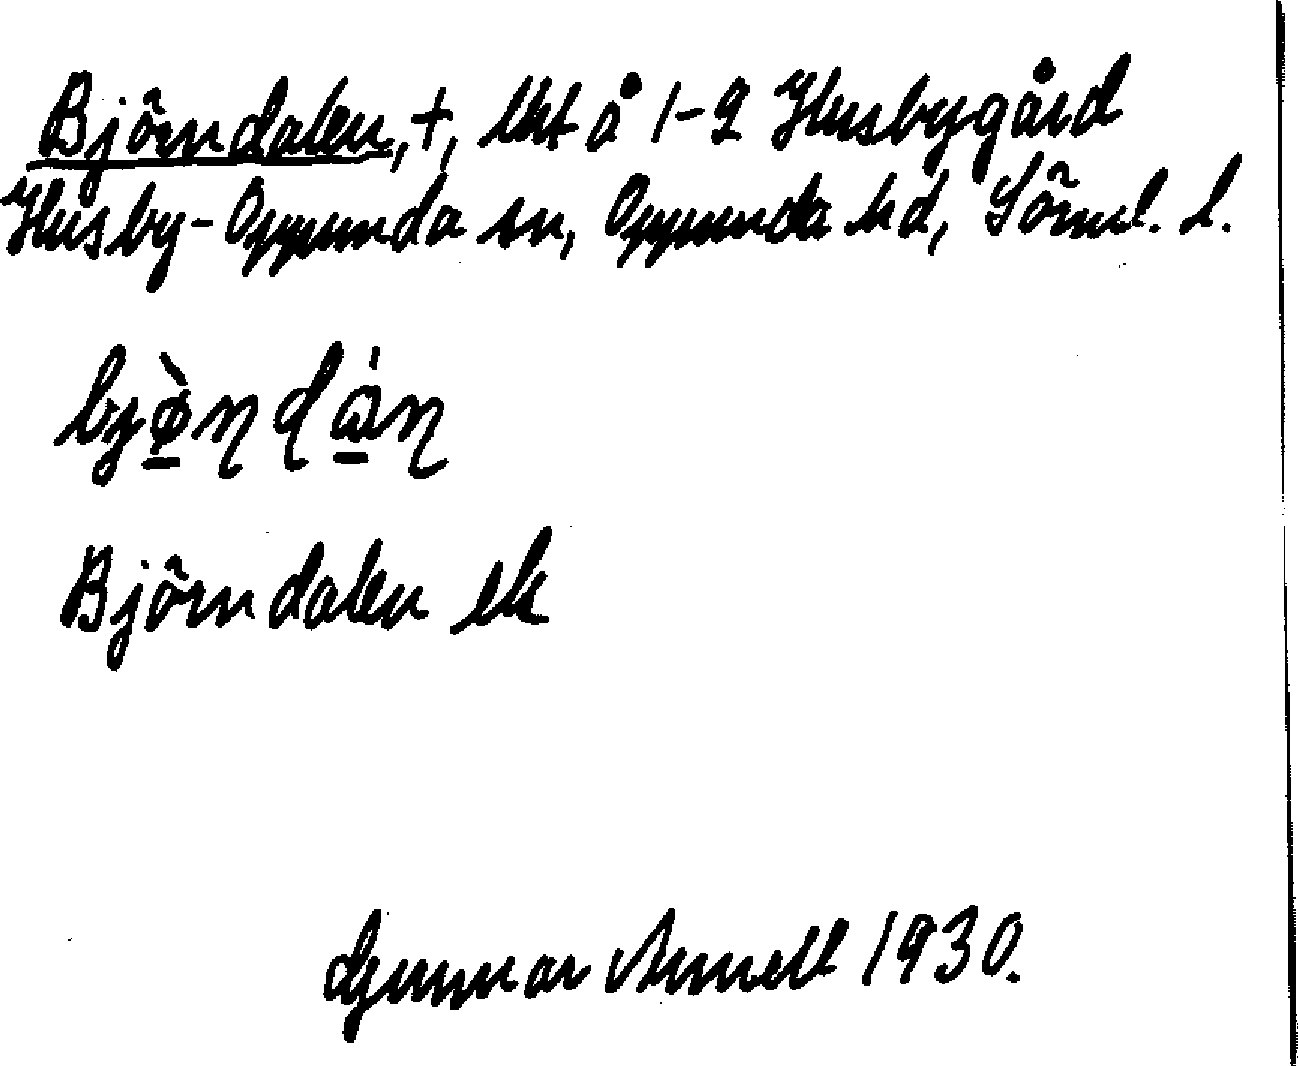 Björndalen, +, lht å 1-2 Husbygård
Husby-Oppunda sn, Oppunda hd, Söml. l.
bjø̀ṇdán
Björndalen ek
Gunnar Arnell 1930.